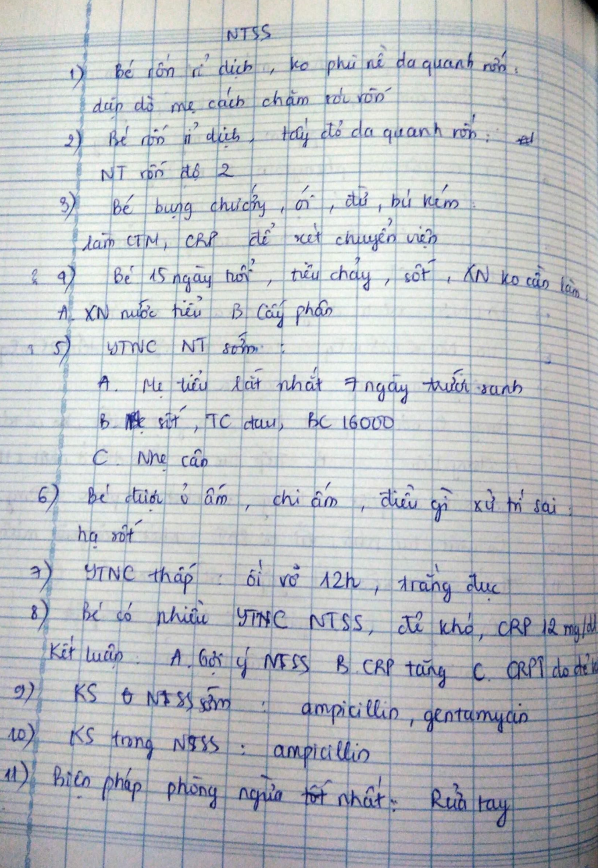 NTSS
1) Bé rốn rỉ dịch, ko phù nề da quanh rốn:
dặn dò mẹ cách chăm sóc rốn
2) Bé rốn rỉ dịch, tấy đỏ da quanh rốn:
NT rốn độ 2
3) Bé bụng chướng, ói, đừ, bú kém:
làm CTM, CRP để xét chuyển viện
4) Bé 15 ngày tuổi, tiêu chảy, sốt, XN ko cần làm
A. XN nước tiểu B Cấy phân
5) YTNC NT sớm:
A. Mẹ tiểu lắt nhắt 7 ngày trước sanh
B. sốt, TC đau, BC 16000
C. Nhẹ cân
6) Bé được ủ ấm, chi ấm, điều gì xử trí sai:
hạ sốt
7) YTNC thấp: ối vỡ 12h, trắng đục
8) Bé có nhiều YTNC NTSS, đẻ khó, CRP 12 mg/dl
Kết luận: A. Gợi ý NTSS B. CRP tăng C. CRP↑ do đẻ k
9) KS NTSS sớm: ampicillin, gentamycin
10) KS trong NTSS: ampicillin
11) Biện pháp phòng ngừa tốt nhất: Rửa tay